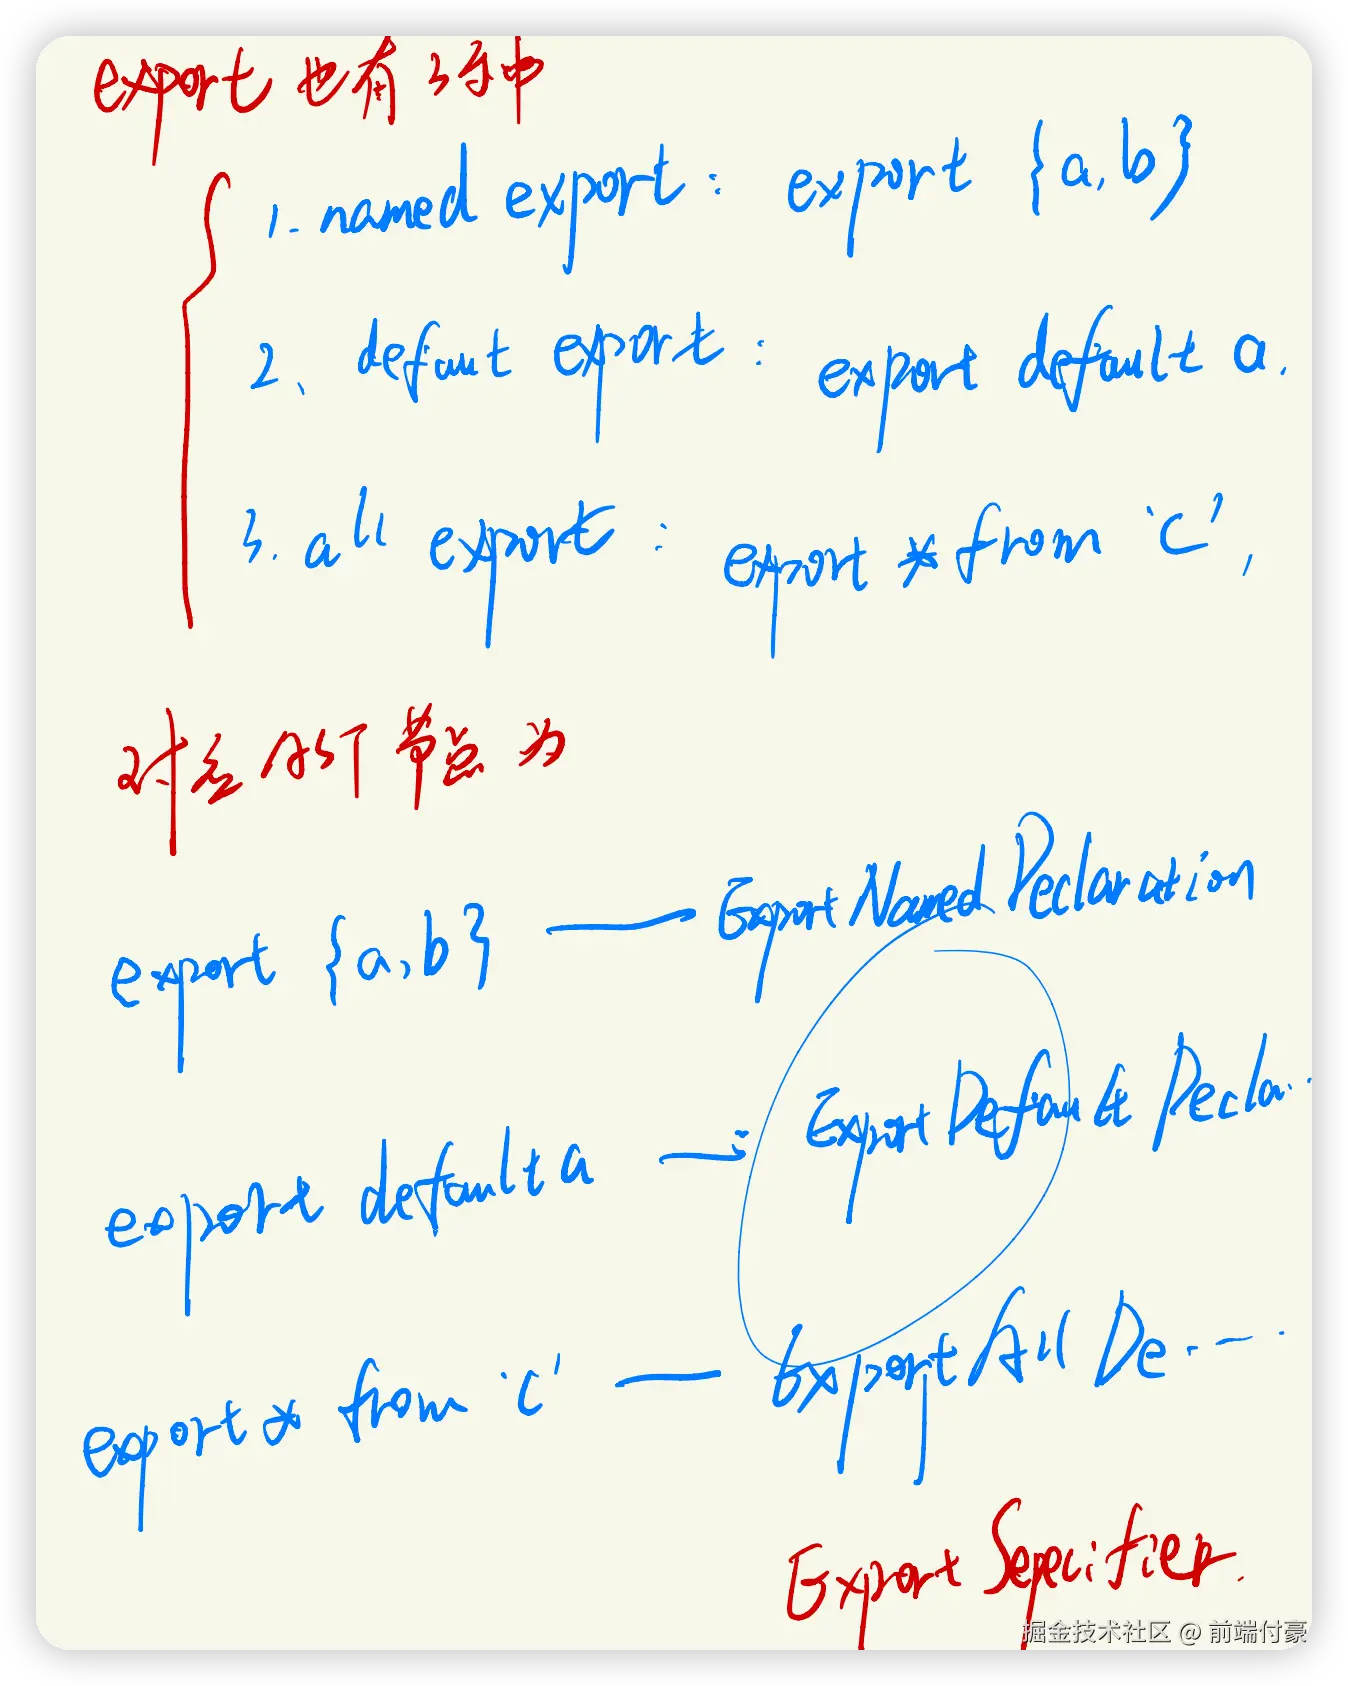 export 也有3种
1. named export: export {a,b}
2、defaut export: export default a.
3. all export: export * from 'c',
对应 AST 节点为
export {a,b} — ExportNamedDeclaration
export default a — ExportDefault Decla...
export * from 'c' — ExportAll De....
Export Sepecifier.
掘金技术社区 @ 前端付豪